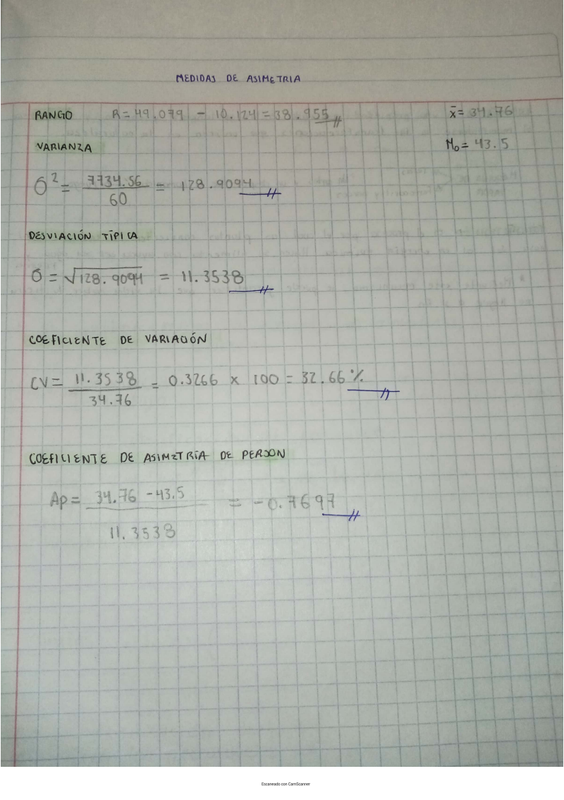 MEDIDAS DE ASIMETRIA
RANGO R = 49.079 - 10.124 = 38.955 x̄ = 34.76
VARIANZA Mo = 43.5
σ² = 7734.56 / 60 = 128.9094
DESVIACIÓN TÍPICA
σ = √128.9094 = 11.3538
COEFICIENTE DE VARIAOÓN
CV = 11.3538 / 34.76 = 0.3266 x 100 = 32.66 %
COEFICIENTE DE ASIMETRÍA DE PERSON
Ap = 34.76 - 43.5 / 11.3538 = -0.7697
Escaneado con CamScanner